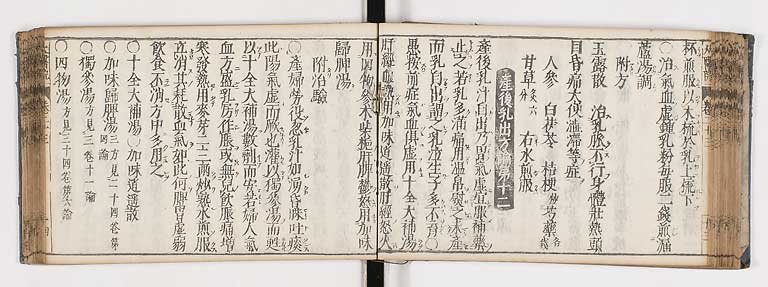 杯煎服以木梳於乳上梳下
○治氣血虛鍾乳粉每服二錢煎漏
蘆湯調
附方
玉露散 治乳脹不行身體壯熱頭
目昏痛大便澁滯等症
人參 白茯苓 桔梗 芍藥各
甘草六分 右水煎服
產後乳出方論第十二
產後乳汁自出乃胃氣虛宜服補藥
止之若乳多滿痛用溫帛熨之未產
而乳自出謂之乳泣生子多不育○
愚按前症氣血俱虛用十全大補湯
肝經血熱用加味逍遙散肝經怒火
用四物參朮柴梔肝脾鬱怒用加味
歸脾湯
附治驗
○產婦勞役忽乳汁如湧昏昧吐痰
此陽氣虛而厥也灌以獨參湯而甦
以十全大補湯數劑而安若婦人氣
血方盛乳房作脹或無兒飲脹痛增
寒發熱用麥芽二三兩炒熟水煎服
立消其耗散血氣如此何脾胃虛弱
飲食不消方中多用之
○十全大補湯 ○加味逍遙散
○加味歸脾湯三方見二十四卷第
○獨參湯方見三卷十一論
○四物湯方見三十四卷第六論